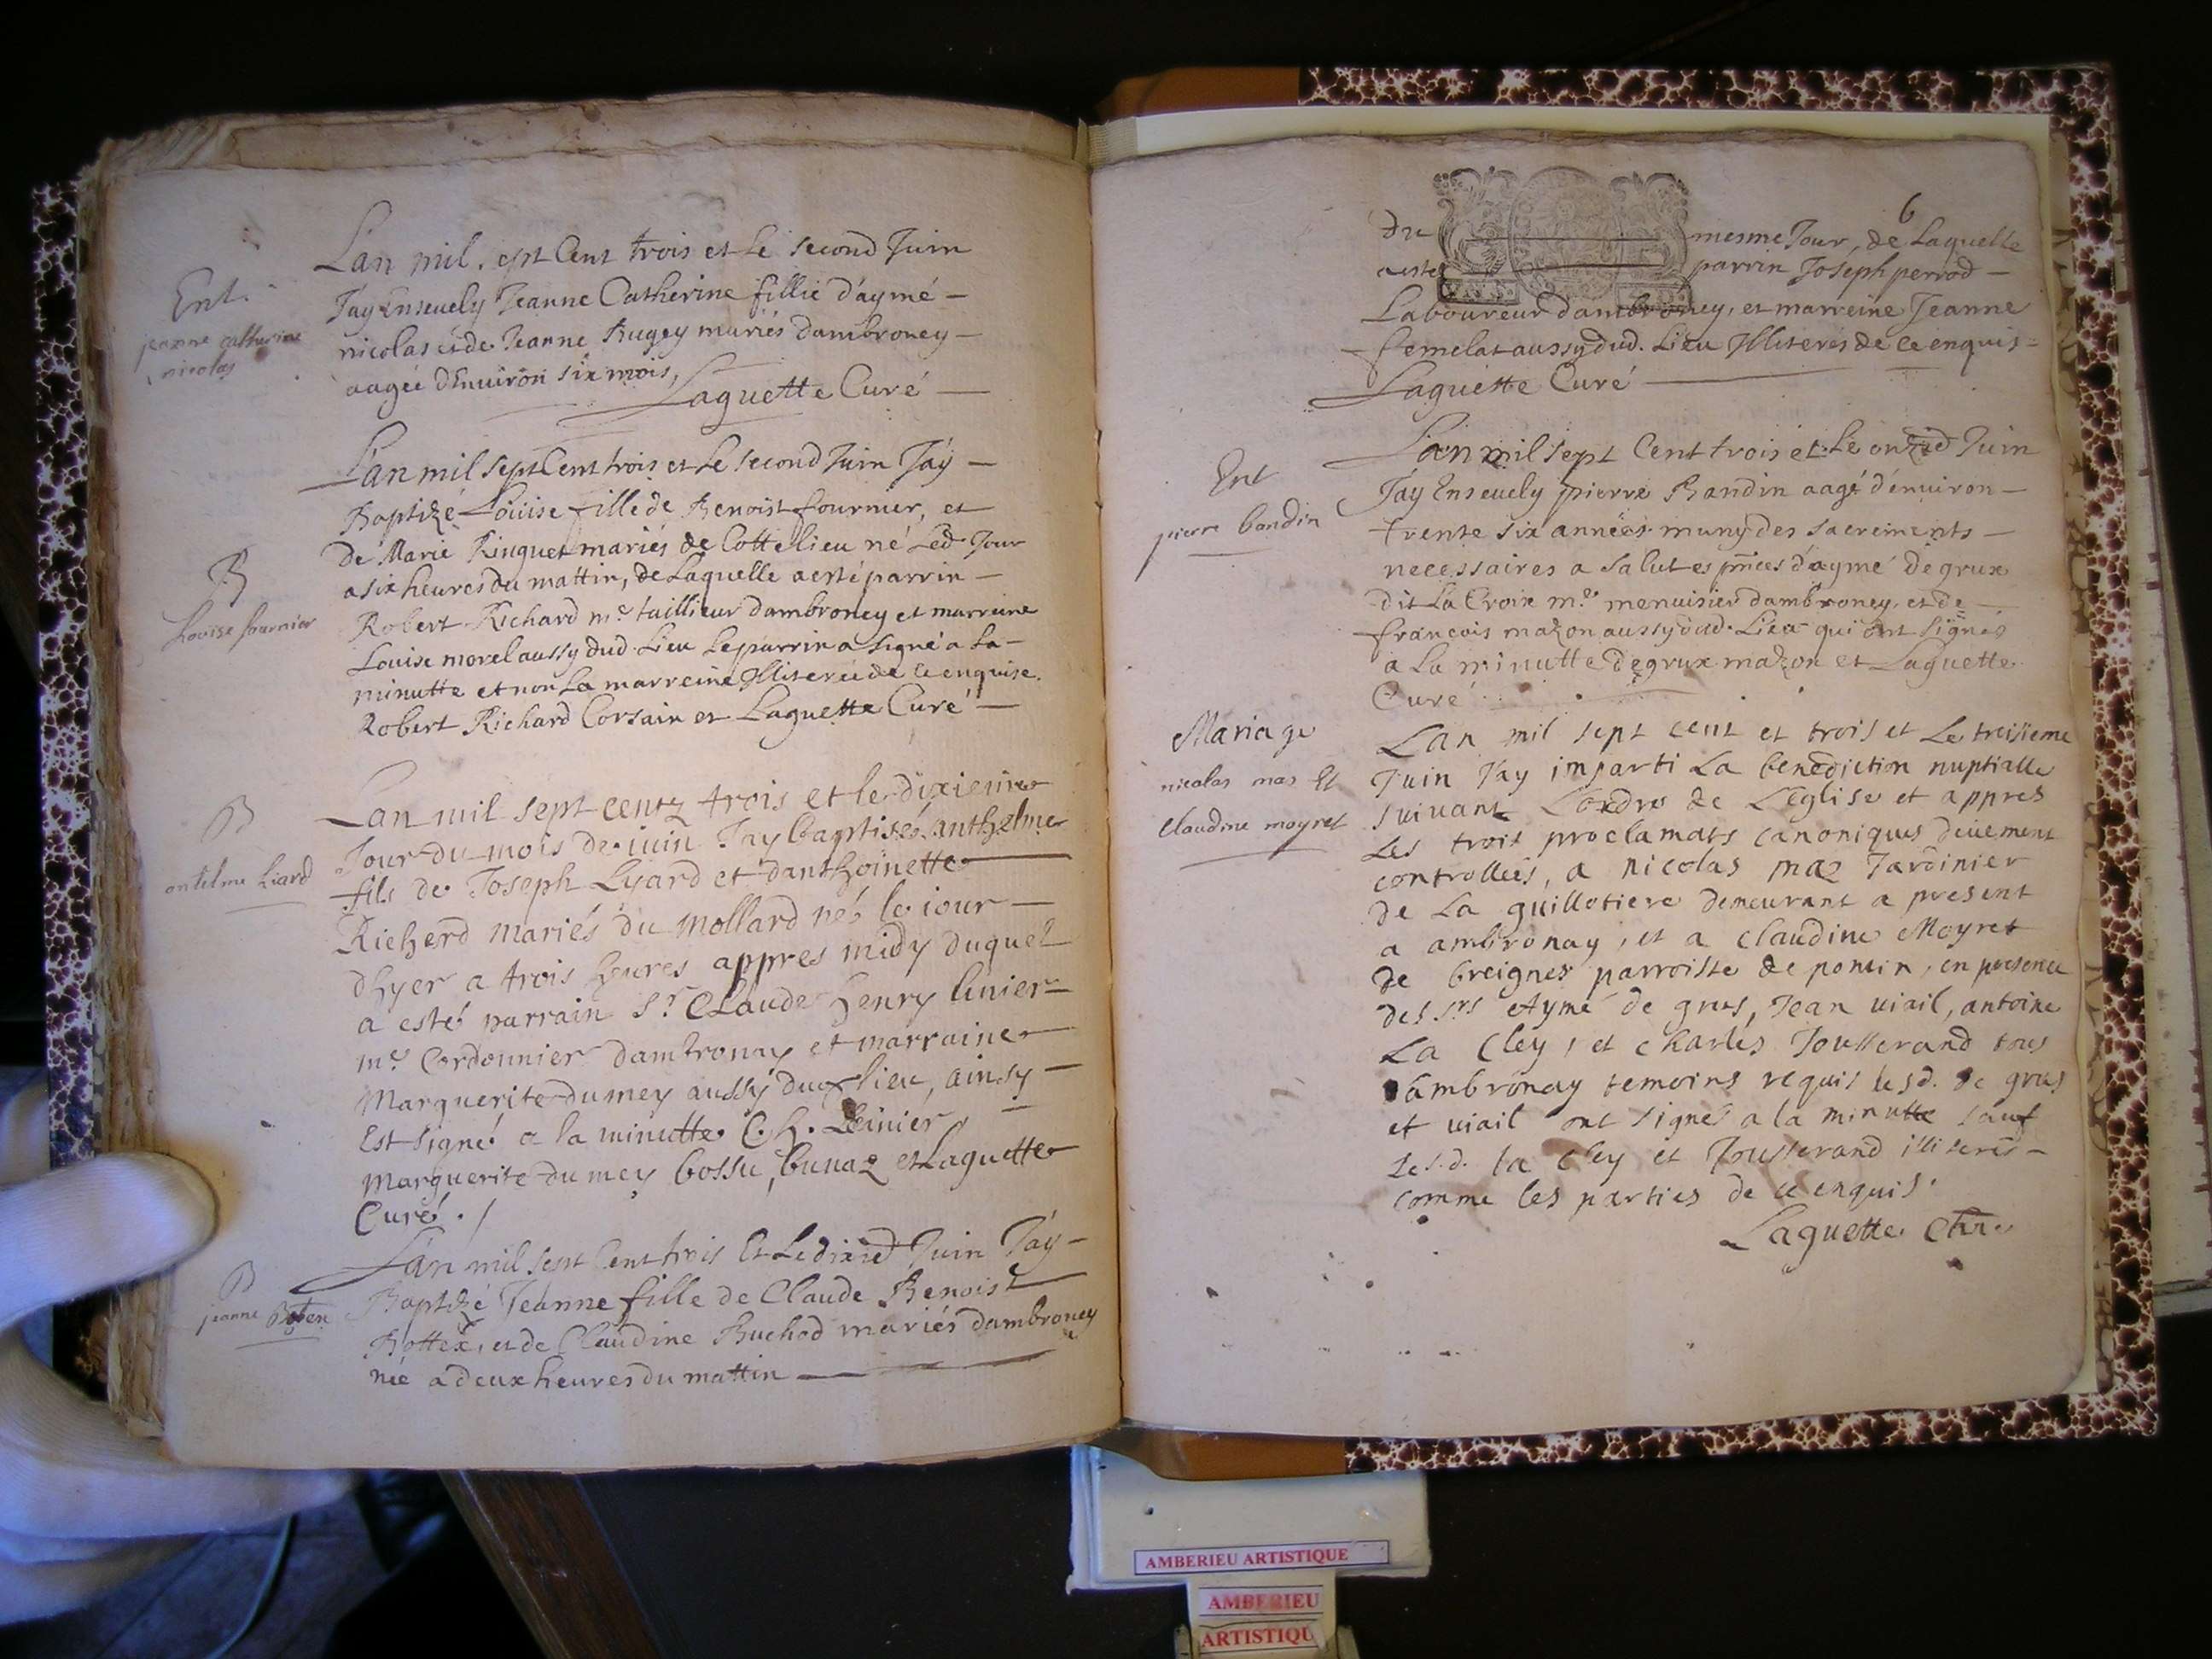 Ent.
jeanne catherine
nicolas
Lan mil sept Cent trois et Le second Juin
Jáy Enseuely Jeanne Catherine fillie d'aymé -
nicolas et de Jeanne Bugey mariés dambroney -
aagée d'Enuiron six mois,
Laguette Curé -
B
Louise fournier
L'an mil sept Cent trois et Le second Juin Jáy -
Baptizé Loüise fille de Benoist fournier, et
de Marie Ringuet mariés de Cottelieu né Led Jour
a six heures du mattin, de Laquelle a esté parrin -
Robert Richard me taillieur dambroney et marreine
Louise morel aussy dud. Lieu Le parrin a signé a La -
minutte et non La marreine Illiterée de ce enquise.
Robert Richard Corsain et Laguette Curé -
B
antelme Liard
Lan mil sept centz trois et le dixieme
Jour du mois de iuin Jay baptisés anthelme
fils de Joseph Lyard et danthoinette
Richerd mariés du mollard nés le iour -
dhyer a trois heures appres midy duquel
a esté parrain Sr. Claude henry linier -
me Cordonnier dambronay et marraine
Marguerite dumey aussy dud lieu, ainsy -
Est signé a la minutte C. h. Leinier,
Marguerite du mey bossu, bunaz et Laguette
Curé. /
B
jeanne Boten
L'an mil sept Cent trois Et Le dixie Juin Jáy -
Baptizé Jeanne fille de Claude Benoist
Bottex, et de Claudine Buchod mariés dambroney
née a deux heures du mattin
6
Du mesme Jour, de Laquelle
a esté parrin Joseph perrod -
Laboureur dambroney, et marreine Jeanne
femelat aussy dud. Lieu Illiterés de ce enquis -
Laguette Curé
Ent
pierre bandin
L'an mil sept Cent trois et Le onzie Juin
Jáy Enseuely pierre Bandin aagé d'enuiron -
trente six années muny des sacrements -
necessaires a salut es pnces d'aymé degrux
dit La Croix me menuisier dambroney, et de
francois mazon aussy dud. Lieu qui ont signés
a La minutte degrux mazon et Laguette
Curé
Mariage
nicolas mas Et
Claudine moyret
Lan mil sept cent et trois et Le treisieme
Juin Jay imparti La benediction nuptialle
suivant Lordre de Leglise et appres
Les trois proclamats canoniques deuement
controllés, a nicolas maz Jardinier
de La guillotiere demeurant a present
a ambronay, et a Claudine Moyret
de breignes parroisse de poncin, en presence
des srs Aymé de grus, Jean uiail, antoine
La Cley, et Charles Jousserand tous
dambronay temoins requis lesd. de grus
et uiail ont signés a la minutte sauf
Lesd. la Cley et Jousserand illiterés -
comme les parties de ce enquis.
Laguette
AMBERIEU ARTISTIQUE
AMBERIEU
ARTISTIQU